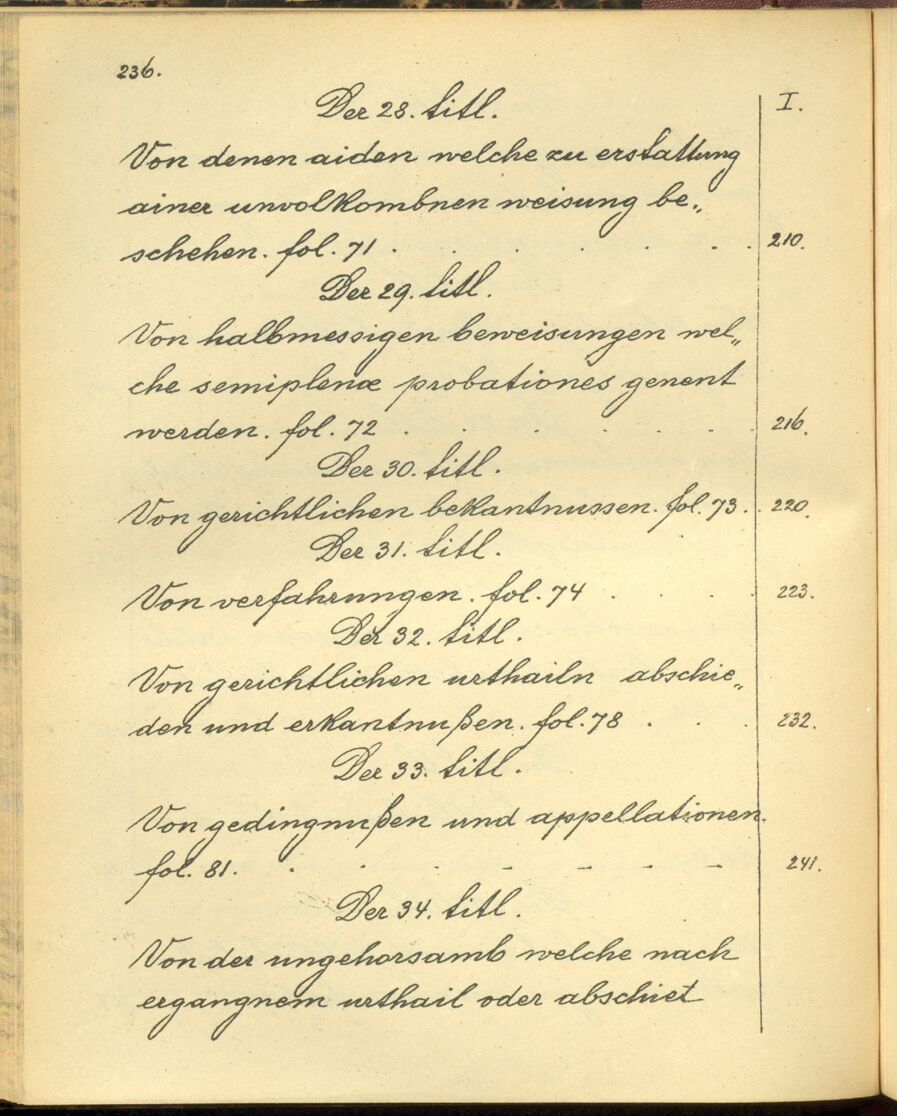 236.
Der 28. titl.
I.
Von denen aiden welche zu erstattung
ainer unvolkombnen weisung be„
schehen. fol. 71 . . . . . . . 210.
Der 29. titl.
Von halbmessigen beweisungen wel„
che semiplenæ probationes genent
werden. fol. 72 . . . . . . . 216.
Der 30. titl.
Von gerichtlichen bekantnussen. fol. 73. . 220.
Der 31. titl.
Von verfahrungen. fol. 74 . . . . 223.
Der 32. titl.
Von gerichtlichen urthailn abschie„
den und erkantnußen. fol. 78 . . . 232.
Der 33. titl.
Von gedingnußen und appellationen.
fol. 81. . . . - - - - 241.
Der 34. titl.
Von der ungehorsamb welche nach
ergangnem urthail oder abschiet